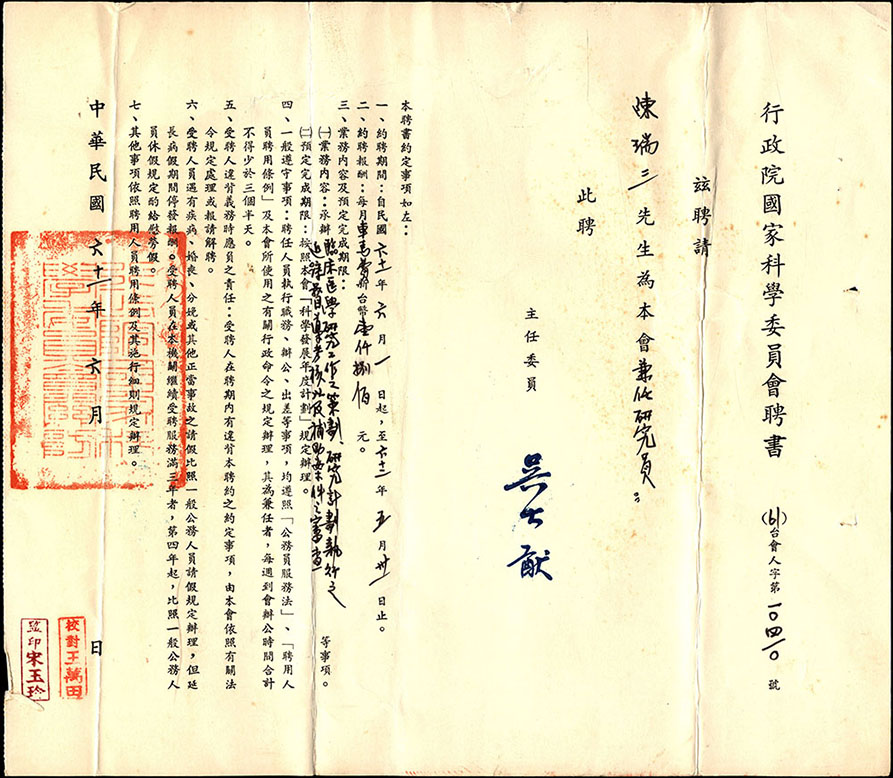 行政院國家科學委員會聘書
(61)台會人字第一〇四二〇號
茲聘請
陳瑞三先生為本會兼任研究員:
此聘
主任委員 吳大猷
本聘書約定事項如左：
一、約聘期間：自民國六十一年六月一日起，至六十二年五月卅一日止。
二、約聘報酬：每月車馬費新台幣壹仟捌佰元。
三、業務內容及預定完成期限：
㈠業務內容：承辦臨床醫學研究工作之策劃、研究計劃執行之追蹤督導考核以及補助案件之審查等事項。
㈡預定完成期限：按照本會「科學發展年度計劃」規定辦理。
四、一般遵守事項：聘任人員執行職務、辦公、出差等事項，均遵照「公務員服務法」、「聘用人
員聘用條例」及本會所使用之有關行政命令之規定辦理，其為兼任者，每週到會辦公時間合計
不得少於三個半天。
五、受聘人違背義務時應負之責任：受聘人在聘期內有違背本聘約之約定事項，由本會依照有關法
令規定處理或報請解聘。
六、受聘人員遇有疾病、婚喪、分娩或其他正當事故之請假比照一般公務人員請假規定辦理，但延
長病假期間停發報酬。受聘人員在本機關繼續受聘服務滿三年者，第四年起，比照一般公務人
員休假規定酌給慰勞假。
七、其他事項依照聘用人員聘用條例及其施行細則規定辦理。
中華民國六十一年六月 日
校對王萬田
監印宋玉珍